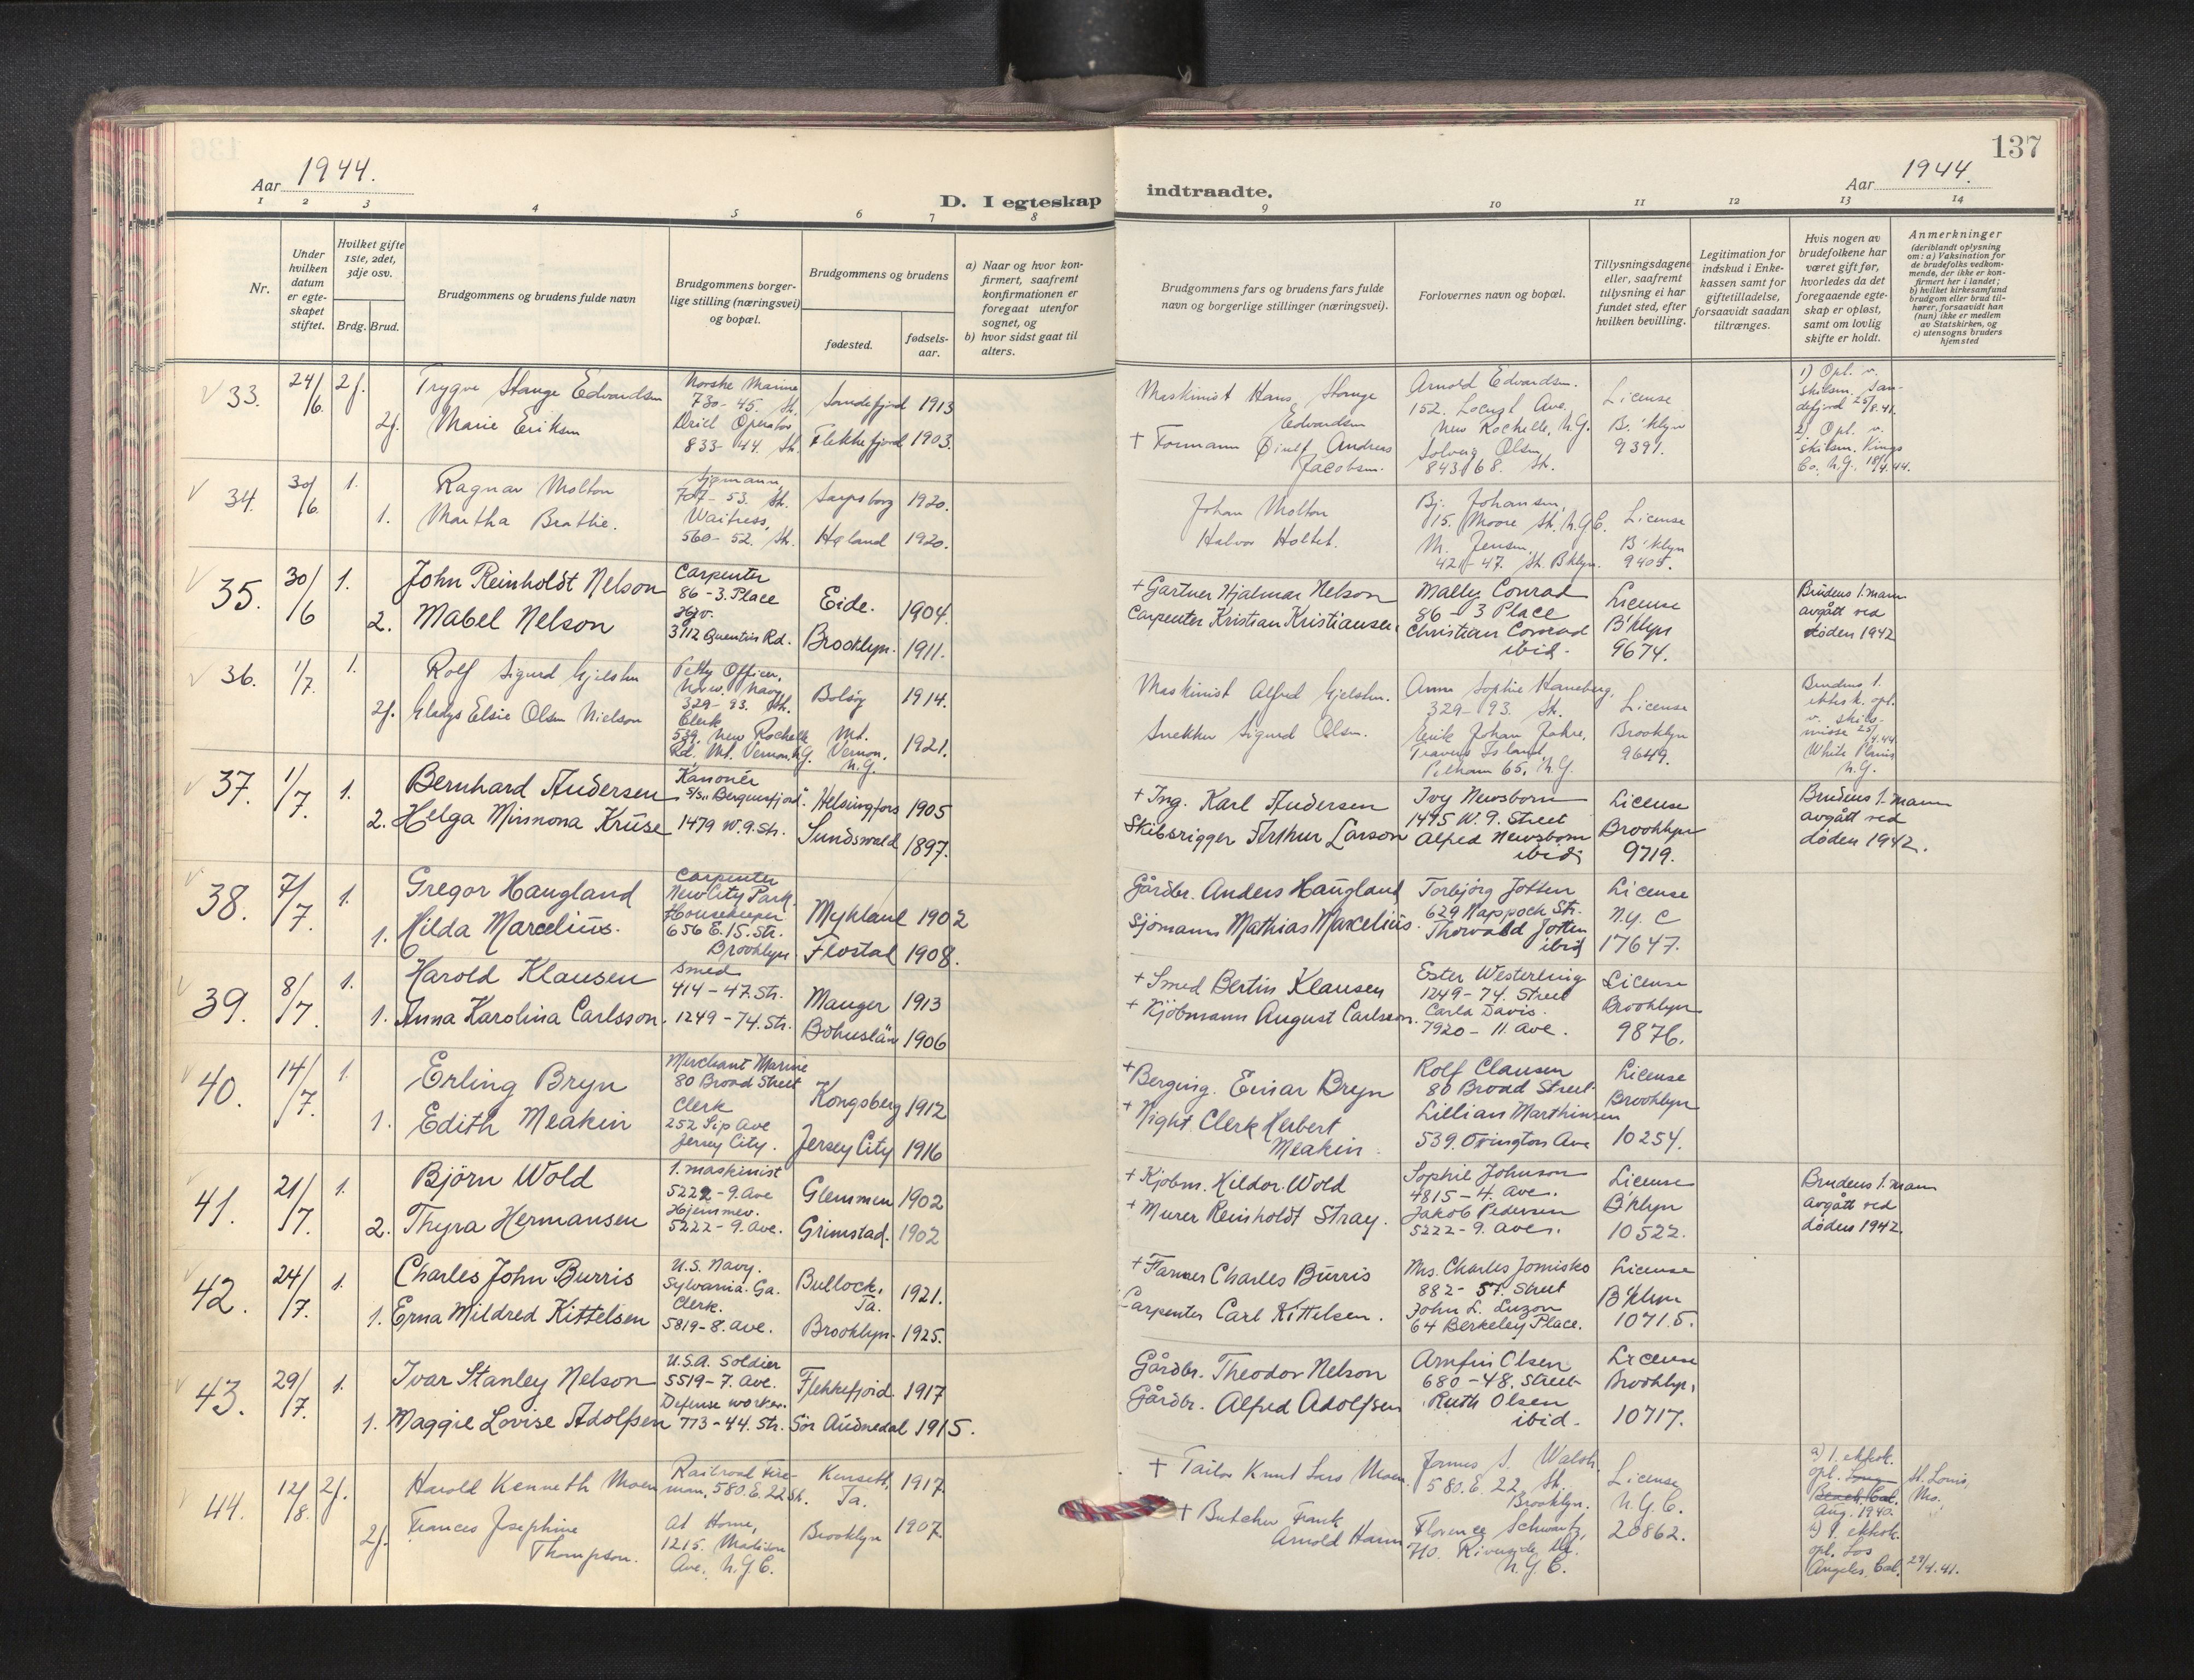 137
Aar 1944.
D. I egteskap
indtraadte.
Aar 1944.
1 2 3 4 5 6 7 8
9 10 11 12 13 14
Nr.
Under hvilken datum er egteskapet stiftet.
Hvilket gifte 1ste, 2det, 3dje osv.
Brdg. Brud.
Brudgommens og brudens fulde navn
Brudgommens borgerlige stilling (næringsvei) og bopæl.
Brudgommens og brudens
fødested.
fødsels-aar.
a) Naar og hvor konfirmert, saafremt konfirmationen er foregaat utenfor sognet, og
b) hvor sidst gaat til alters.
Brudgommens fars og brudens fars fulde navn og borgerlige stillinger (næringsvei).
Forlovernes navn og bopæl.
Tillysningsdagene eller, saafremt tillysning ei har fundet sted, efter hvilken bevilling.
Legitimation for indskud i Enkekassen samt for giftetilladelse, forsaavidt saadan tiltrænges.
Hvis nogen av brudefolkene har været gift før, hvorledes da det foregaaende egteskap er opløst, samt om lovlig skifte er holdt.
Anmerkninger
(deriblandt oplysning om: a) Vaksination for de brudefolks vedkommende, der ikke er konfirmert her i landet; b) hvilket kirkesamfund brudgom eller brud tilhører, forsaavidt han (hun) ikke er medlem av Statskirken, og c) utensogns bruders hjemsted
33. 24/6. 2g.
Trygve Stange Edvardsen
Norske Marine
730- 45. St.
Sandefjord 1913
2g. Marie Eriksen
Drill Operator
833- 44. St.
Flekkefjord 1903.
Maskinist Hans Stange
Edvardsen
+ Formann Andreas
Jacobsen.
Arnold Edvardsen.
152. Locust Ave.
New Rochelle, N.Y.
Solveig Olsen
843 68. St.
License
B.'klyn
9391.
1) Opl. v.
skilsm. San-
defjord 25/8.41.
2) Opl. v.
skilsm. Kings
Co. N.Y. 18/4.44.
34. 30/6. 1.
Ragnar Molton
Sjømann,
707- 53. St.
Sarpsborg 1920.
1. Martha Brathe.
Waitress,
560- 52. St.
Høland 1920.
Johan Molton
Halvor Holtet.
Bj. Johansen,
15. Moore St. N.Y.C.
M. Jensen,
421- 47. St. Bklyn.
License
B'klyn
9405.
35. 30/6 1.
John Reinholdt Nelson
Carpenter
86 - 3. Place
Eide. 1904.
2. Mabel Nelson
Hjv.
3112 Quentin Rd.
Brooklyn. 1911.
+ Gartner Hjalmar Nelson
Carpenter Kristian Kristiansen.
Mally Conrad
86 - 3 Place
Christian Conrad
ibid.
License
B'klyn
9674.
Brudens 1. mann
avgått ved
døden 1942
36. 1/7. 1.
Rolf Sigurd Gjelsten
Petty Officer,
Norw. Navy
329- 93. St.
Bolsøy 1914.
2g. Gladys Elsie Olsen Nielson
Clerk
539. New Rochelle
Rd. Mt. Vernon, N.Y.
Mt.
Vernon,
N.Y.
1921.
Maskinist Alfred Gjelsten.
Snekker Sigurd Olsen.
Anna Sophie Hanneberg,
329- 93. St.
Erik Johan Jahre,
Travers Island,
Pelham 65, N.Y.
License
Brooklyn
9649.
Brudens 1.
ektesk. opl.
v. skils-
misse 25/4.44
White Plains
N.Y.
37. 1/7. 1.
Bernhard Andersen
Kanonér
S/S. "Bergensfjord"
Helsingfors 1905
2. Helga Minmona Kruse
1479 W. 9. Str.
Sundswald 1897.
+ Ing. Karl Andersen
Skibsrigger Arthur Larson
Ivy Newsborn
1495 W. 9. Street
Alfred Newsborn
ibid.
License
Brooklyn
9719.
Brudens 1. mann
avgått ved
døden 1942.
38. 7/7. 1.
Gregor Haugland
Carpenter
New City Park
Mykland 1902
1. Hilda Marcelius.
Housekeeper
656 E. 15. Str.
Brooklyn
Flostad 1908.
Gårdbr. Anders Haugland
Sjømann Mathias Marcelius.
Torbjørg Jotten
629 Nappock Str.
Thorvald Jotten
ibid
License
N.Y. C
17647.
39. 8/7. 1.
Harold Klausen
Smed
414 - 47. Str.
Manger 1913
1. Anna Karolina Carlsson.
1249 - 74. Str.
Bohuslän 1906
+ Smed Bertin Klausen
+ Kjöbmann August Carlsson.
Ester Westerling
1249 - 74. Street
Carla Davis.
7920 - 11. Ave.
License
Brooklyn
9876.
40. 14/7. 1.
Erling Bryn
Merchant Marine
80 Broad Street
Kongsberg 1912
1. Edith Meakin
Clerk
252 Sip Ave
Jersey City.
Jersey City 1916
+ Berging. Einar Bryn
+ Night Clerk Herbert
Meakin.
Rolf Clausen
80 Broad Street.
Lillian Marthinsen
539. Ovington Ave
License
Brooklyn
10254.
41. 21/7. 1.
Björn Wold
1. maskinist
5222 - 9. Ave
Glemmen 1902
2. Thyra Hermansen
Hjemmev.
5222 - 9. Ave.
Grimstad. 1902
+ Kjöbm. Hildor Wold
+ Murer Reinholdt Stray.
Sophie Johnson
4815 - 4. Ave.
Jakob Pedersen
5222 - 9. Ave.
License
B'klyn
10522.
Brudens 1. mann
avgått ved
døden 1942.
42. 24/7. 1.
Charles John Burris
U.S. Navy.
Sylvania. Ga.
Bullock,
Ta.
1921.
1. Erna Mildred Kittelsen
Clerk.
5819 - 8. Ave.
Brooklyn. 1925.
+ Farmer Charles Burris
Carpenter Carl Kittelsen.
Mrs. Charles Jomisko
882 - 57. Street
John L. Luzon
64 Berkeley Place.
License
B'klyn
10715.
43. 29/7. 1.
Ivar Stanley Nelson
U.S.A. Soldier
5519 - 7. Ave.
Flekkefjord 1917
1. Maggie Lovise Adolfsen
Defense worker.
773 - 44. Str.
Sør Audnedal 1915.
Gårdbr. Theodor Nelson
Gårdbr. Alfred Adolfsen
Arnfin Olsen
680 - 48. Street
Ruth Olsen
ibid.
License
Brooklyn,
10717.
44. 12/8. 2g.
Harold Kenneth Moen
Railroad Fire-
man, 580. E. 22 St.
Kensett,
Ta.
1917.
2g. Frances Josephine
Thompson.
At Home,
1215. Madison
Ave. N.Y.C.
Brooklyn 1907.
+ Tailor Knut Lars Moen.
+ Butcher Frank
Arnold Hamm
James S. Walsh,
580. E. 22. St.
Brooklyn.
Florence Schwartz,
710. Riverside Dr.
N.Y.C.
License
N.Y.C.
20862.
a) 1. ektesk.
opl. Long
Beach, Cal.
Aug. 1940.
St. Louis,
Mo.
b) 1. ektesk.
opl. Los
Angeles, Cal. 29/4.41.